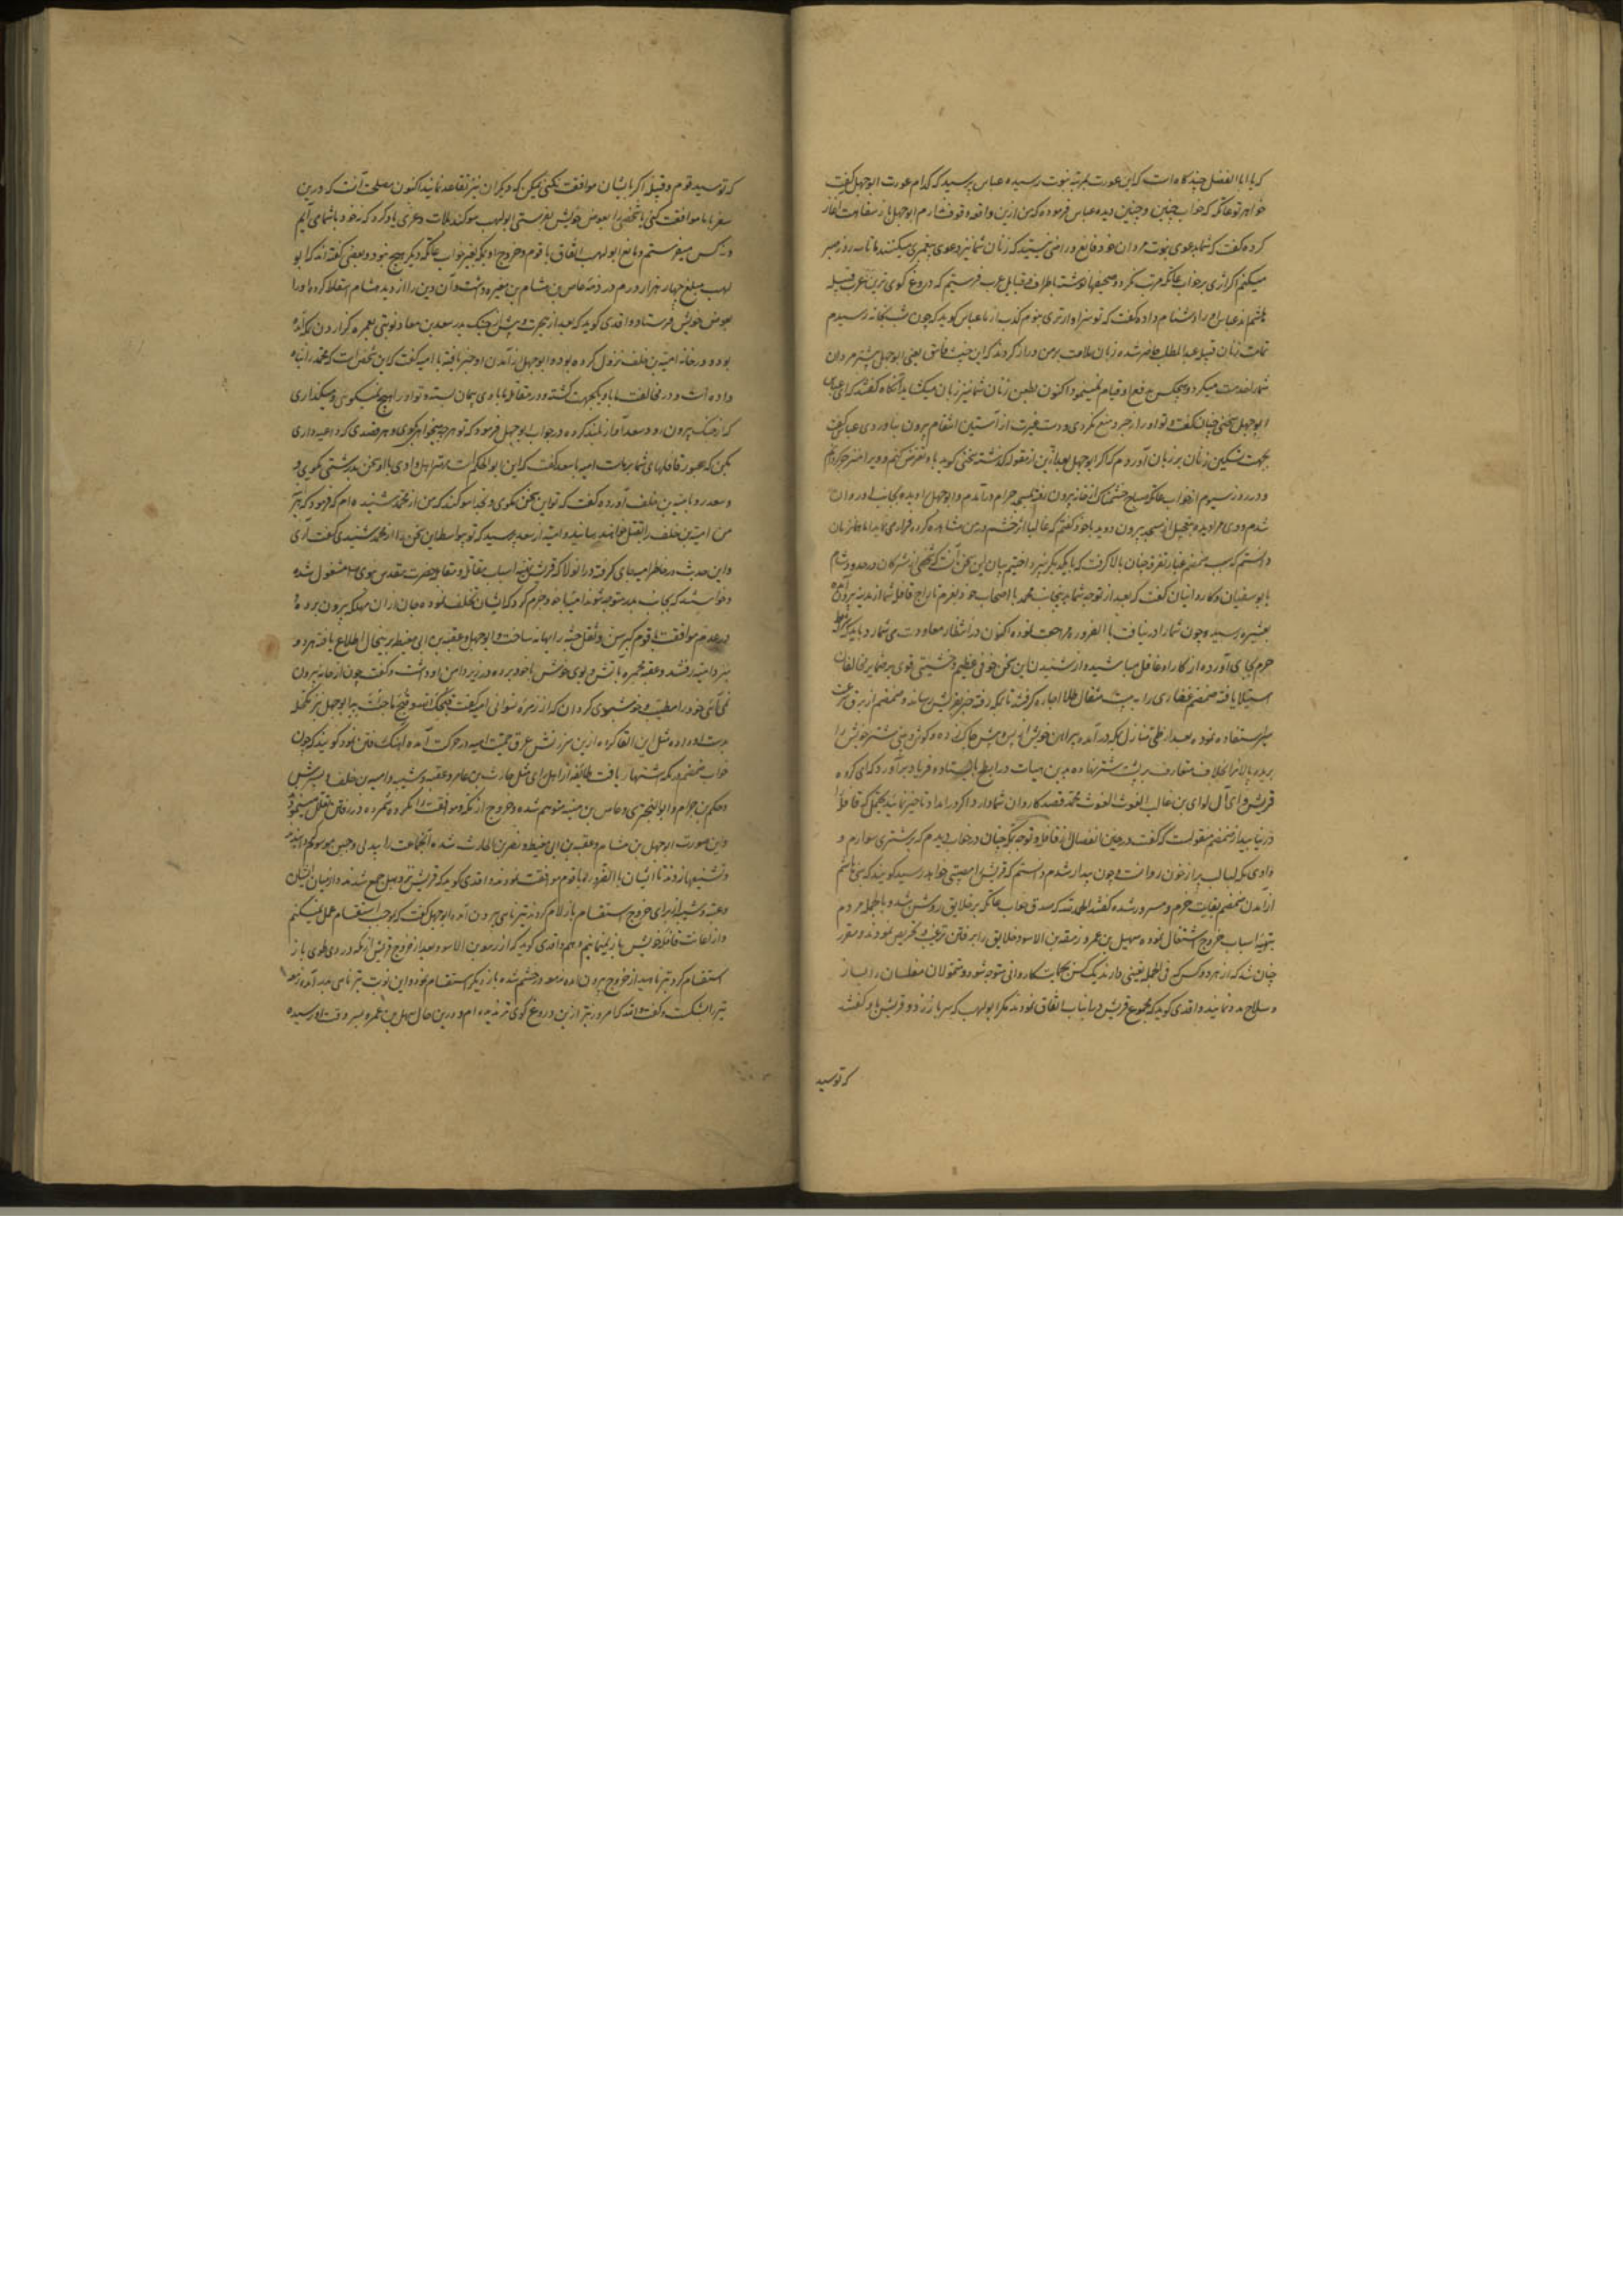 که یا ابا الفضل چند کاه است که این عورت بمرتبه نبوت رسیده عباس پرسید که کدام عورت ابوجهل گفت
خواهر تو عاتکه که خواب چنین و چنین دیده عباس فرموده که من ازین واقعه وقوف ندارم ابوجهل باز سفاهت اغاز
کرده گفت که شما بدعوی نبوت مردان خود قانع و راضی نیستید که زنان شما نیز دعوی پیغمبری میکنند ما تا سه روز صبر
میکنم اکر اثری بر خواب عاتکه مرتب نکردد صحیفها نوشته باطراف قبایل عرب فرستیم که دروغ کوی ترین عرب قبیله
هاشم اند عباس او را دشنام داده گفت که تو سزاوارتری بلوم و کذب از ما عباس کوید که چون شب بخانه رسیدم
تمامت زنان قبیله عبد المطلب حاضر شده زبان ملامت بر من دراز کردند که این خبیث فاسق یعنی ابوجهل پیشتر مردان
شما را مذمت میکرد و هیچکس بدفع او قیام نمینمود اکنون بطعن زنان شما نیز زبان میکشاید آنکاه گفتند که ای عباس
ابوجهل سخنی چنان گفت و تو او را زجر و منع نکردی و دست غیرت از آستین انتقام بیرون نیاوردی عباس گفت
بجهت تسکین زنان بر زبان آوردم که اکر ابوجهل بعد ازین از مقوله گذشته سخنی کوید با او تعرض کنم
و در روز سیوم از خواب عاتکه صباح خشمناک از خانه بیرون رفته بمسجد حرام درآمدم و ابوجهل را دیده بجانب او روان
شدم و وی مرا دیده و بتعجیل از مسجد بیرون دوید با خود گفتم که غالبا اثر خشم در من مشاهده کرده فرار می نماید اما بعد از زمان
دانستم که سبب ضمضم غبار تفرقه چنان بالا گرفت که با یکدیگر نپرداختیم بیان این سخن آنست که شخصی از مشرکان در حدود شام
با ابو سفیان و کاروانیان گفت که بعد از توجه شما بدینجانب محمد با اصحاب خود بعزم تاراج قافله شما از مدینه بیرون آمده
بعشیره رسیده چون شما را در نیافت بالضروره مراجعت نموده اکنون در انتظار معاودت شما دارد باید که شرط
حزم بجای آورده از کار او غافل مباشید و از شنیدن این سخن خوفی عظیم و خشیتی قوی بر ضمایر مخالفان
استیلا یافته ضمضم غفاری را به بیست مثقال طلا اجاره کرفتند تا بمکه رفته خبر بقریش رساند و ضمضم از برق سرعت
سیر استعاده نموده بعد از طی منازل بمکه درآمده پیراهن خویش از پس و پیش چاک زده و کوش و بینی شتر خویش را
بریده پالانرا بخلاف متعارف بر پشت شتر نهاده بدین هیات در ابطح بایستاده فریاد برآورد که ای کروه
قریش و ای آل لوای بن غالب الغوث الغوث محمد قصد کاروان شما دارد اکر در امداد تاخیر نمائید محتمل که قافله را
در نیابید از ضمضم منقولست که گفت در حین انفصال از قافله و توجه بمکه چنان در خواب دیدم که بر شتری سوارم و
وادی مکه لبالب پر از خون روانست و چون بیدار شدم دانستم که قریش را مصیبتی خواهد رسید کویند که بنی هاشم
از آمدن ضمضم بغایت خرم و مسرور شده گفتند الحمد لله که صدق خواب عاتکه بر خلایق روشن شد و بالجمله مردم
بتهیه اسباب خروج اشتغال نموده سهیل بن عمرو و زمعة بن الاسود خلایق را بر رفتن ترغیب و تحریص نمودند و مقرر
چنان شد که از هر دو کس که فی الجمله یقینی دارند یک کس بحمایت کاروانی متوجه شود و متمولان مفلسان را بساز
و سلاح مدد نمایند واقدی کوید که مجموع قریش درین باب اتفاق نمودند مکر ابولهب که سر باز زد و قریش با او گفتند
که تو سید
که تو سید قوم و قبیله اکر با ایشان موافقت نکنی ممکن که دیکران نیز تقاعد نمایند اکنون مصلحت آنست که درین
سفر با ما موافقت کنی یا شخصی را بعوض خویش بفرستی ابولهب سوکند بلات و عزی یاد کرد که نه خود با شما می آیم
و نه کس میفرستم و مانع ابولهب از اتفاق با قوم و خروج او بمکه بغیر خواب عاتکه دیکر هیچ نبود و بعضی گفته اند که ابو
لهب مبلغ چهار هزار درم در ذمه عاص بن هشام بن مغیره داشت و آن دین را از دمه هشام اسقاط کرده او را
بعوض خویش فرستاد واقدی کوید که بعد از هجرت و پیش از جنک بدر سعد بن معاذ نوبتی بعمره کزاردن بمکه آمده
بود و در خانه امیة بن خلف نزول کرده بود و ابوجهل از آمدن او خبر یافته با امیه گفت که این شخص است که محمد را پناه
داده است و در مخالفت ما با او یکجهت کشته و در مقاتله ما با وی پیمان بسته و تو او را هیچ نمیکوئی و میکذاری
که از چنک بیرون رود سعد آواز بلند کرده در جواب ابوجهل فرمود که تو هر چه میخواهی بکوی و هر قصدی که داعیه داری
بکن که عبور قافلهای شما بر ماست امیه با سعد گفت که این ابو الحکم است مهتر اهل وادی با او سخن بدرشتی مکوی و
و سعد رو بامیه بن خلف آورده گفت که تو این سخن مکوی و بخدا سوکند که من از محمد شنیده ام که فرمود که هر آینه
من امیة بن خلف را بقتل خواهم رسانید و امیه از سعد پرسید که تو بیواسطه این سخن را از محمد شنیدی گفت آری
و این حدیث در خاطر امیه جای کرفته در آنولا که قریش بتهیه اسباب مقاتله و مقابله حضرت مقدس نبوی مشغول شده
و خواستند که بجانب بدر متوجه شوند امیه با خود جزم کرد که از ایشان تخلف نموده جان از آن مهلکه بیرون برد و
در عدم موافقت با قوم کبر سن و ثقل جثه را بهانه ساخت و ابوجهل و عقبة بن ابی معیط بر ینحال اطلاع یافته هر دو
نزد امیه رفتند و عقبه مجمره با آتش و بوی خوش با خود برده در زیر دامن او داشت و گفت چون از خانه بیرون
نمی آئی خود را مطیب و خوشبوی کردان که از زمره نسوانی امیه گفت قبحک الله و قبح ما جئت به و ابوجهل نیز مکحله
بدست او داده مثل این القا کرد و ازین سرزنش عرق حمیت امیه در حرکت آمده آهنک رفتن نمود کویند که چون
خواب ضمضم در مکه اشتهار یافت طایفه از اهل رای مثل حارث بن عامر و عقبه و شیبه و امیه بن خلف و پسرش
و حکیم بن حزام و ابو البختری و عاص بن منبه متوهم شده و خروج از مکه و موافقت را مکروه شمرده در رفتن تعلل مینمودند
و این صورت ابوجهل بن هشام و عقبة بن ابی معیط و نضر بن الحارث شده آنجماعت را ببددلی و جبن موسوم داشتند
و تشنیعها زدند تا ایشان بالضروره با قوم موافقت نمودند واقدی کوید که قریش نزد هبل جمع شدند و از میان ایشان
و عتبه و شیبه از برای خروج استقسام بازلام کردند تیر ناهی بیرون آمد ابوجهل گفت که بموجب استقسام عمل نمیکنم
و از اعانت قافله خویش باز نمیمانیم و هم واقدی کوید که از زمعة بن الاسود بعد از خروج قریش از مکه در ذی طوی باز
استقسام کرد تیر ناهیه از خروج بیرون آمد زمعه در خشم شده باز دیکر استقسام نمود و این نوبت تیر ناهی برآمد زمعه
تیر را شکست و گفت والله که امروز تیر ازین دروغ کوی تر ندیده ام و درین حال سهیل بن عمرو بسر وقت او رسیده